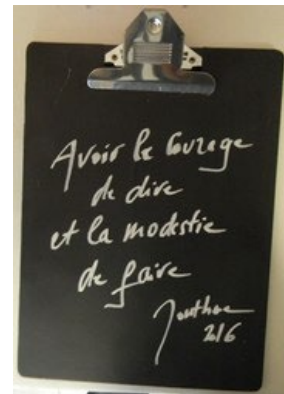 Avoir le Courage
de dire
et la modestie
de faire
2016